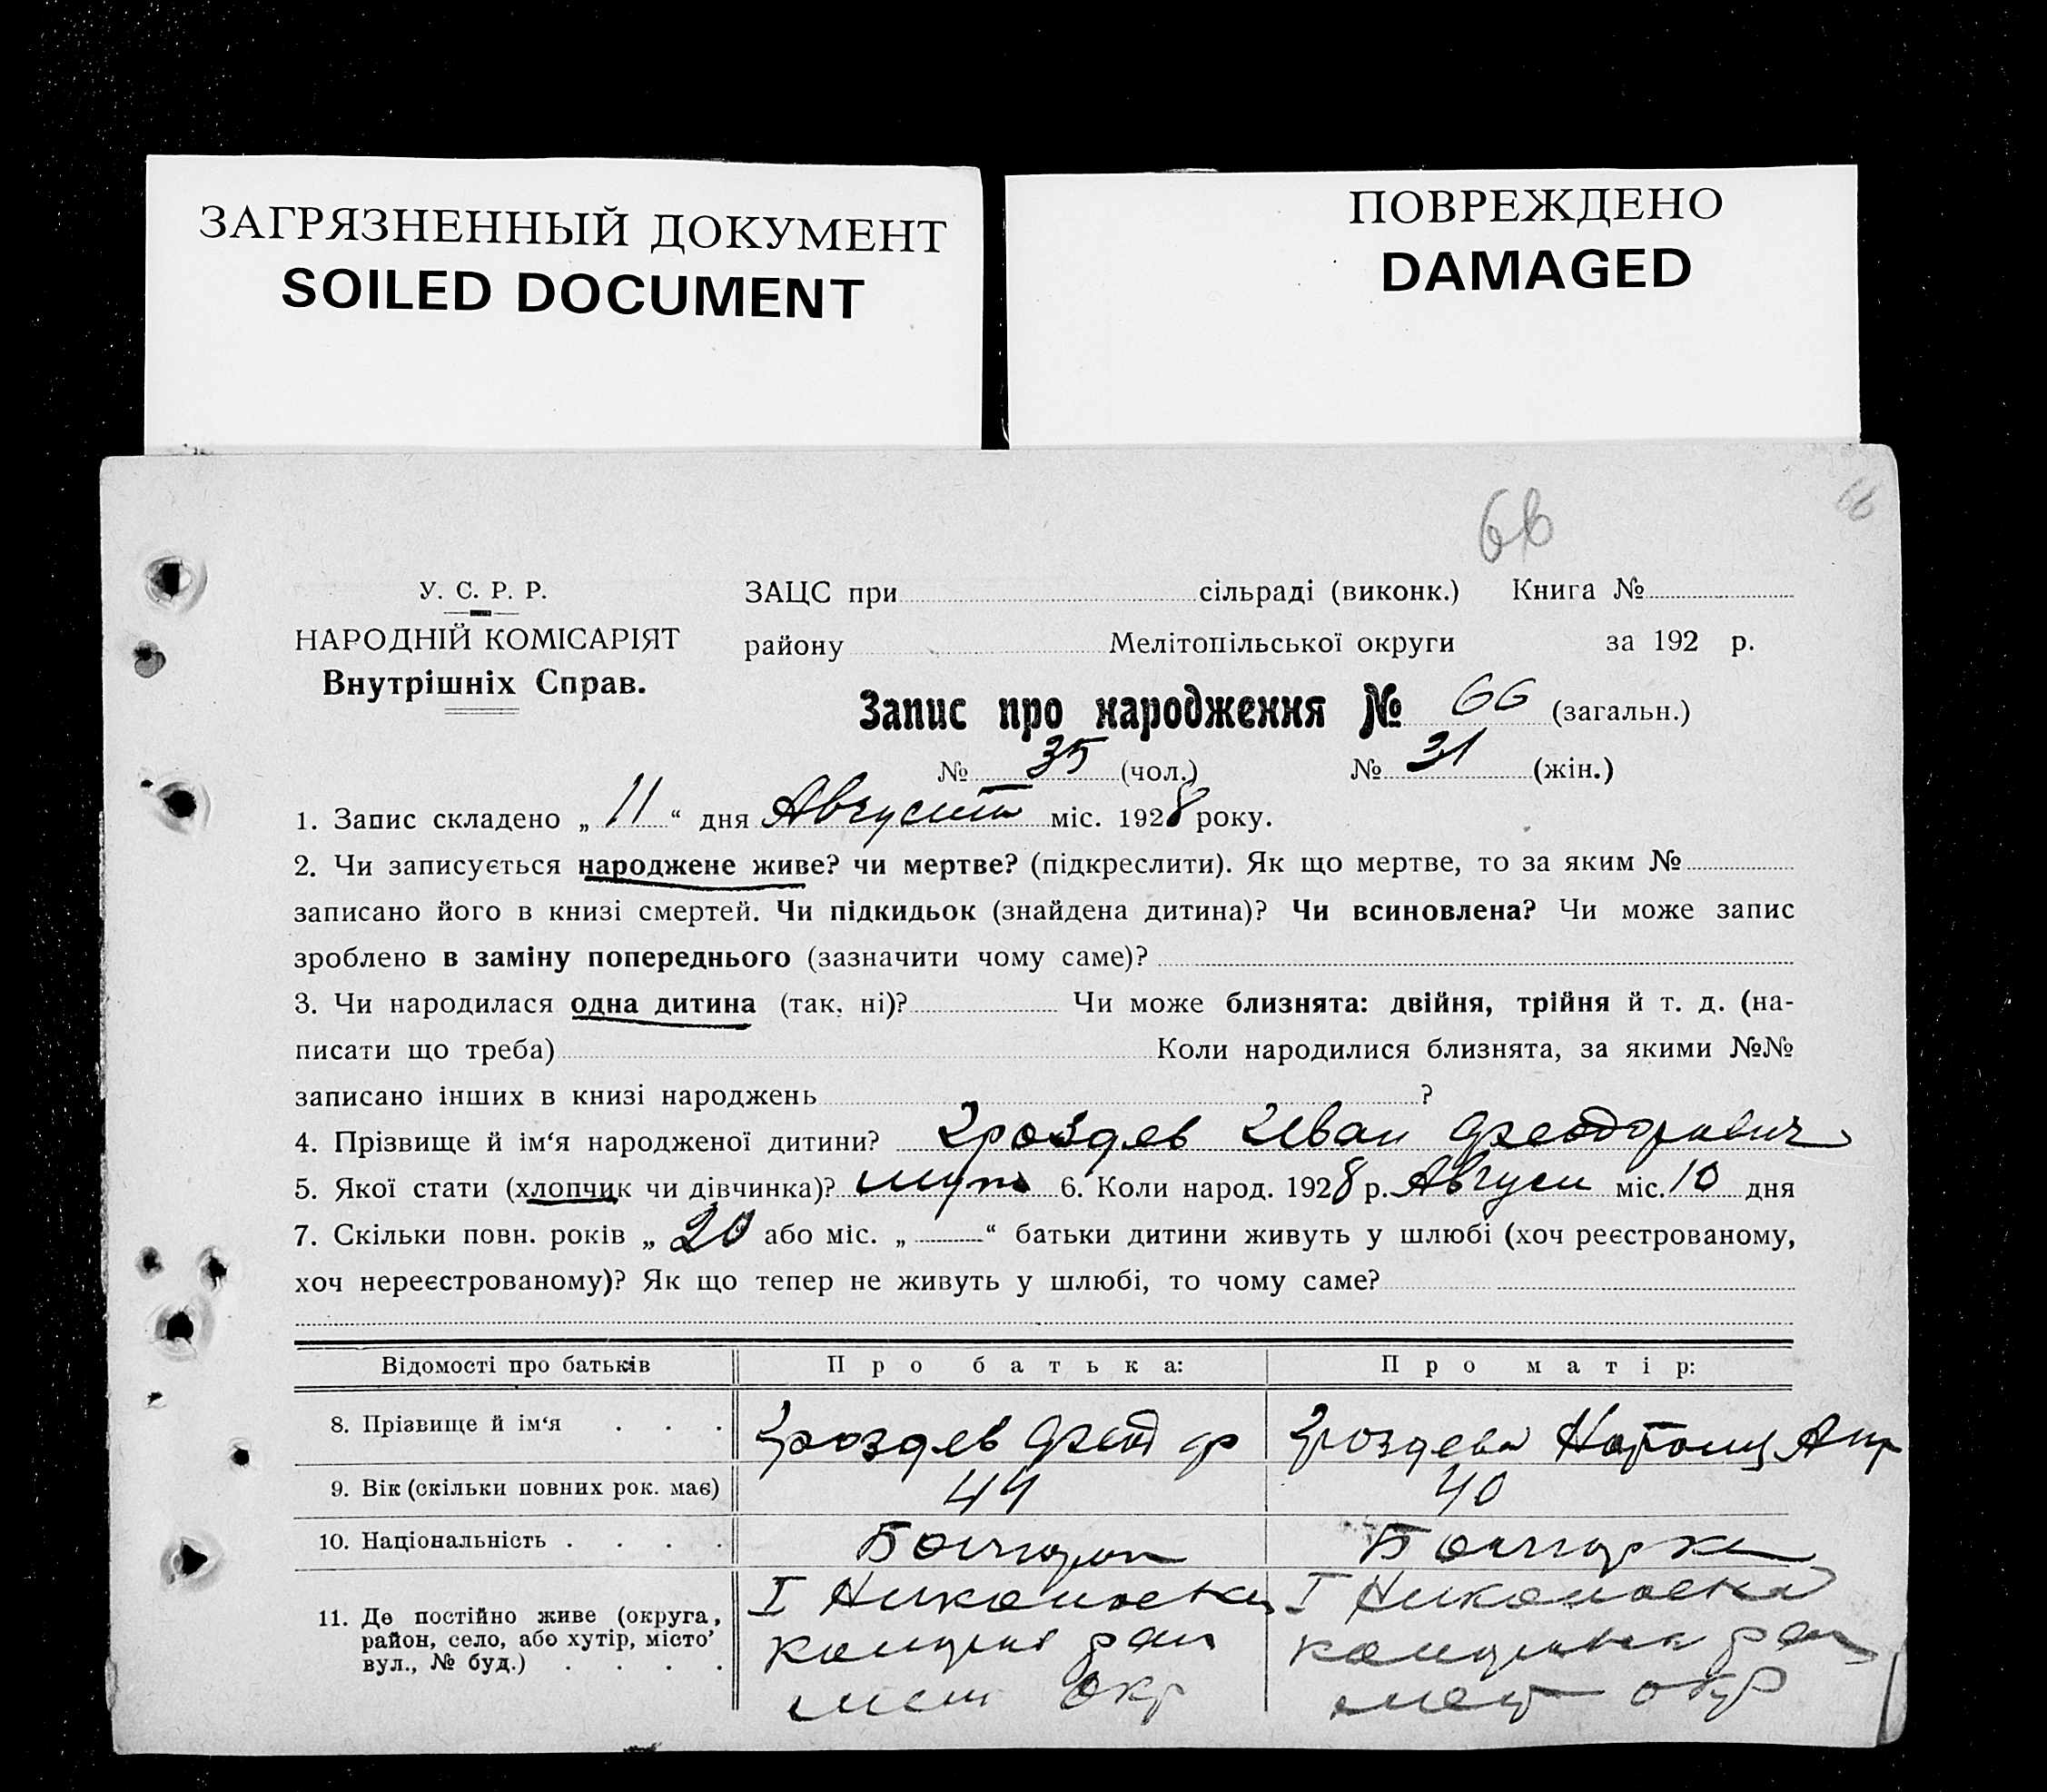 ЗАГРЯЗНЕННЫЙ ДОКУМЕНТ
SOILED DOCUMENT
ПОВРЕЖДЕНО
DAMAGED
66
66
У. С. Р. Р.
НАРОДНІЙ КОМІСАРІЯТ
Внутрішніх Справ.
ЗАЦС при сільраді (виконк.) Книга №
району Мелітопільської округи за 192 р.
Запис про народження № 66 (загальн.)
№ 35 (чол.) № 31 (жін.)
1. Запис складено „ 11 “ дня Августа міс. 1928 року.
2. Чи записується народжене живе? чи мертве? (підкреслити). Як що мертве, то за яким №
записано його в книзі смертей. Чи підкидьок (знайдена дитина)? Чи всиновлена? Чи може запис
зроблено в заміну попереднього (зазначити чому саме)?
3. Чи народилася одна дитина (так, ні)? Чи може близнята: двійня, трійня й т. д. (на-
писати що треба) Коли народилися близнята, за якими №№
записано інших в книзі народжень ?
4. Прізвище й ім‘я народженої дитини? Гроздев Иван Феодорович
5. Якої стати (хлопчик чи дівчинка)? муж 6. Коли народ. 1928 р. Август міс. 10 дня
7. Скільки повн. років „ 20 або міс. „ “ батьки дитини живуть у шлюбі (хоч реєстрованому,
хоч нереєстрованому)? Як що тепер не живуть у шлюбі, то чому саме?
Відомості про батьків Про батька: Про матір:
8. Прізвище й ім‘я . . . Гроздев Феод Ф Гроздева
9. Вік (скільки повних рок. має) 44 40
10. Національність . . . . Болгарин Болгарка
11. Де постійно живе (округа,
район, село, або хутір, місто’
вул., № буд.) . . . .
I Николаевка
рай
мел окр
I Николаевка
мел окр